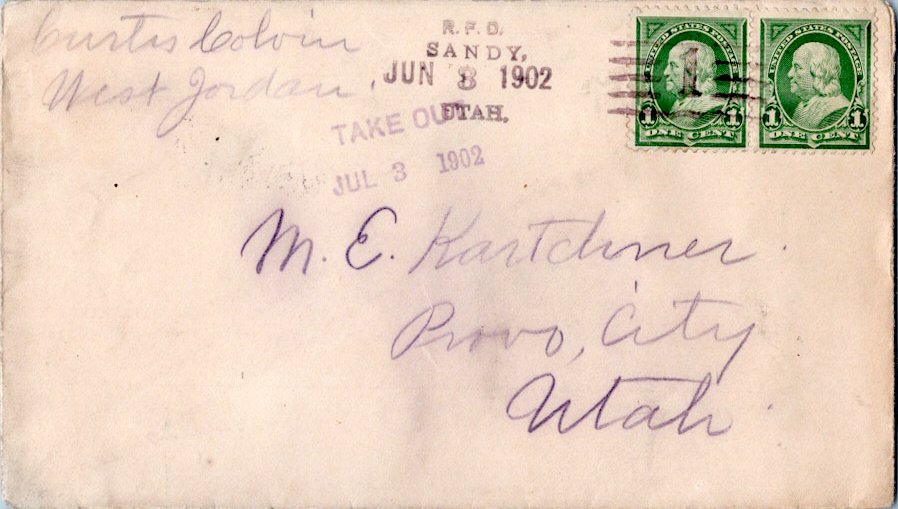 Curtis Colvin
West Jordan.
R. F. D.
SANDY,
JUN 3 1902
UTAH.
TAKE OUT
JUL 3 1902
1
UNITED STATES POSTAGE
1 1
ONE CENT
UNITED STATES POSTAGE
1 1
ONE CENT
M. E. Kartchner.
Provo, City
Utah.